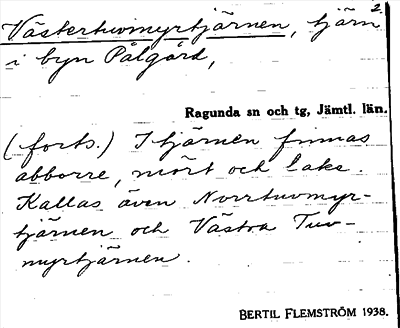 2
Västertuvmyrtjärnen, tjärn
i byn Pålgård,
Ragunda sn och tg, Jämtl. län.
(forts.) I tjärnen finnas
abborre, mört och lake.
Kallas även Norrtuvmyr-
tjärnen och Västra Tuv-
myrtjärnen.
BERTIL FLEMSTRÖM 1938.